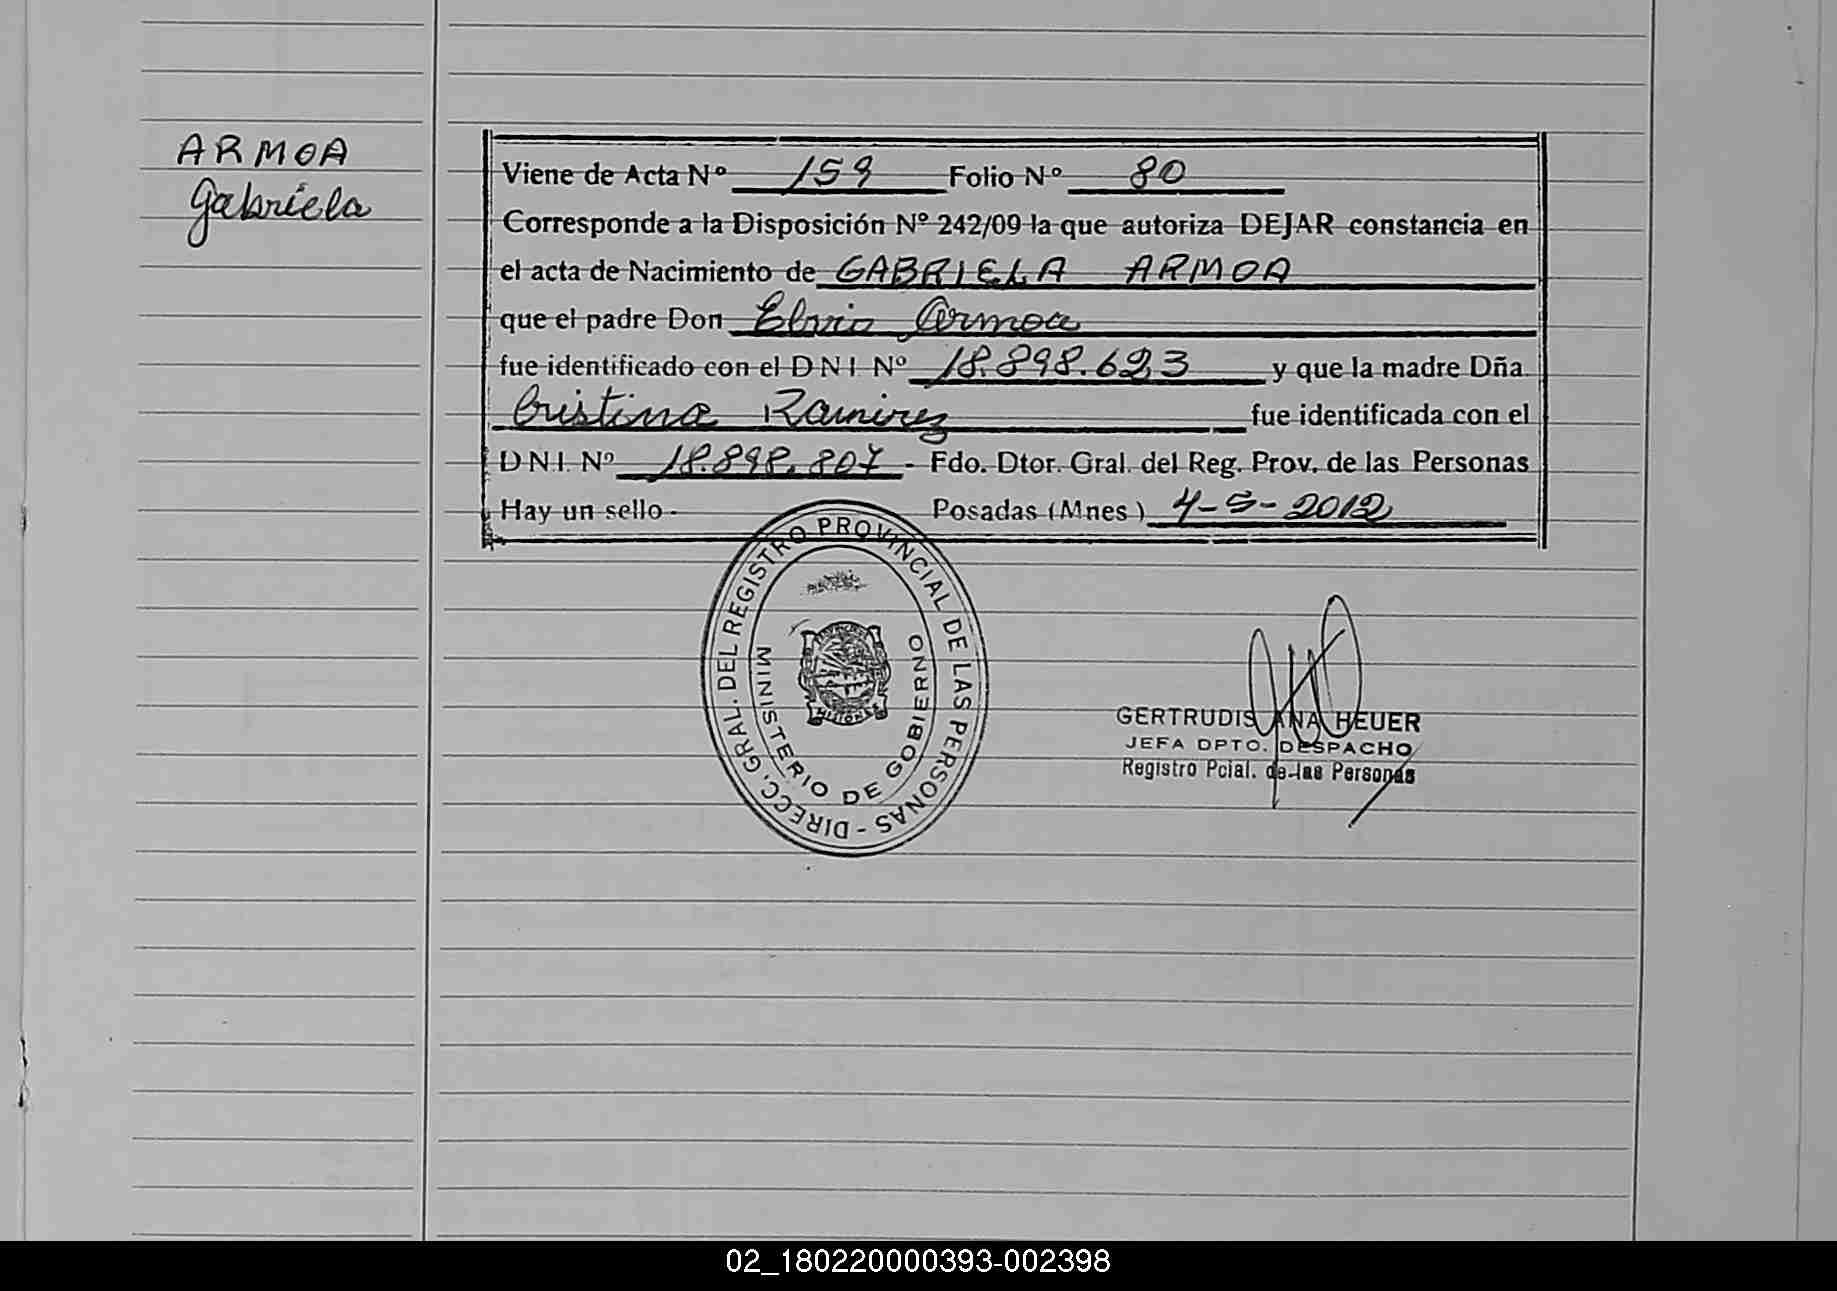 ARMOA
Gabriela
Viene de Acta Nº 159 Folio Nº 80
Corresponde a la Disposición Nº 242/09 la que autoriza DEJAR constancia en
el acta de Nacimiento de GABRIELA ARMOA
que el padre Don Elvio Armoa
fue identificado con el DNI Nº 18.898.623 y que la madre Dña.
Cristina Ramirez fue identificada con el
DNI. Nº 18.898.807 - Fdo. Dtor. Gral. del Reg. Prov. de las Personas
Hay un sello - Posadas (Mnes) 4-5-2012
DIRECC. GRAL. DEL REGISTRO PROVINCIAL DE LAS PERSONAS -
MINISTERIO DE GOBIERNO
MISIONES
GERTRUDIS ANA HEUER
JEFA DPTO. DESPACHO
Registro Pcial. de las Personas
02_180220000393-002398